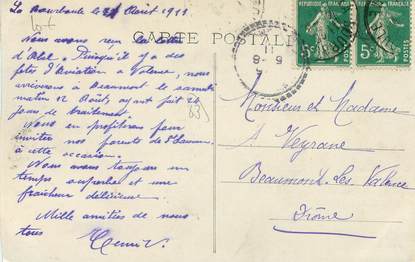 La Bourboule le Août 1911
CARTE POSTALE
Nous avons reçu la lettre
d'Abel. Puisqu'il y a des
fêtes d'Aviation à Valence, nous
arriverons à Beaumont le samedi
matin 12 Août, ayant fait 21
jours de traitement.
Nous en profitons pour
inviter nos parents de
à cette occasion.
Nous avons toujours un
temps superbe et une
fraîcheur délicieuse.
Mille amitiés de nous
tous
Monsieur et Madame
A. Veyrane
Beaumont-les-Valence
Drôme
5c
5c